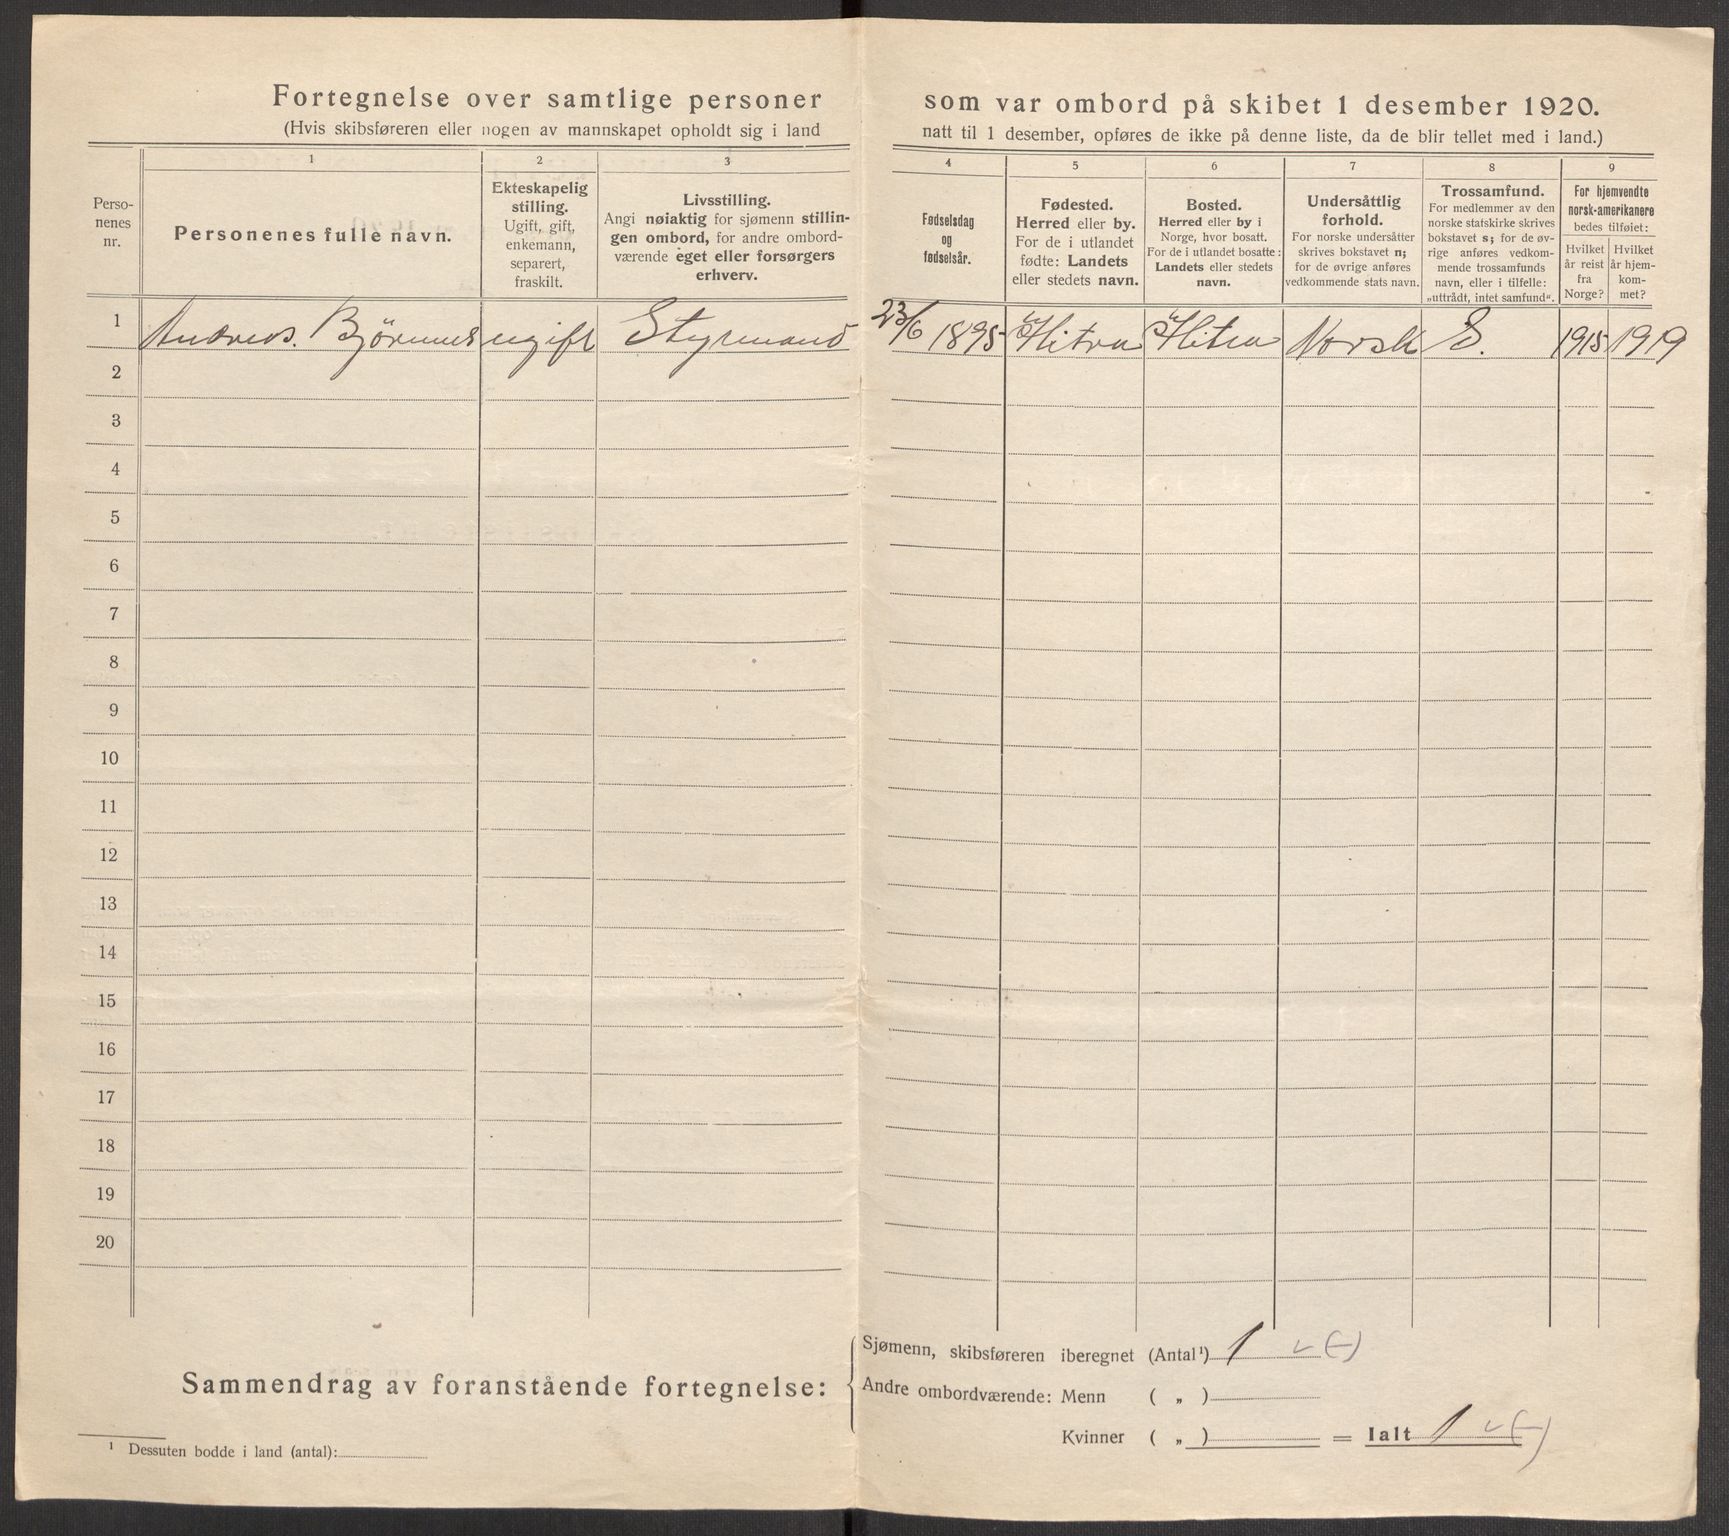 Fortegnelse over samtlige personer som var ombord på skibet 1 desember 1920.
(Hvis skibsføreren eller nogen av mannskapet opholdt sig i land natt til 1 desember, opføres de ikke på denne liste, da de blir tellet med i land.)
Perso-
nenes
nr.
1
Personenes fulle navn.
2
Ekteskapelig
stilling.
Ugift, gift,
enkemann,
separert,
fraskilt.
3
Livsstilling.
Angi nøiaktig for sjømenn stillin-
gen ombord, for andre ombord-
værende eget eller forsørgers
erhverv.
4
Fødselsdag
og
fødselsår.
5
Fødested.
Herred eller by.
For de i utlandet
fødte: Landets
eller stedets navn.
6
Bosted.
Herred eller by i
Norge, hvor bosatt.
For de i utlandet bosatte:
Landets eller stedets
navn.
7
Undersåttlig
forhold.
For norske undersåtter
skrives bokstavet n;
for de øvrige anføres
vedkommende stats navn.
8
Trossamfund.
For medlemmer av den
norske statskirke skrives
bokstavet s; for de øv-
rige anføres vedkom-
mende trossamfunds
navn, eller i tilfelle:
„uttrådt, intet samfund“.
9
For hjemvendte
norsk-amerikanere
bedes tilføiet:
Hvilket
år reist
fra
Norge?
Hvilket
år hjem-
kom-
met?
1 Andreas. ugift Styrmand 23/6 1895 Hitra Hitra Norsk 1915 1919
2
3
4
5
6
7
8
9
10
11
12
13
14
15
16
17
18
19
20
Sammendrag av foranstående fortegnelse:
Sjømenn, skibsføreren iberegnet (Antal¹) 1 (-)
Andre ombordværende: Menn ( „ )
Kvinner ( „ ) = Ialt 1 (-)
¹ Dessuten bodde i land (antal):